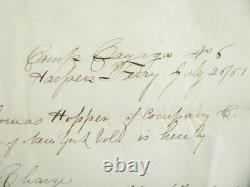 Camp Cayuga No 6
Harpers Ferry July 26/61
omas Hopper of Company C.
of New York Vols is hereby
Charge